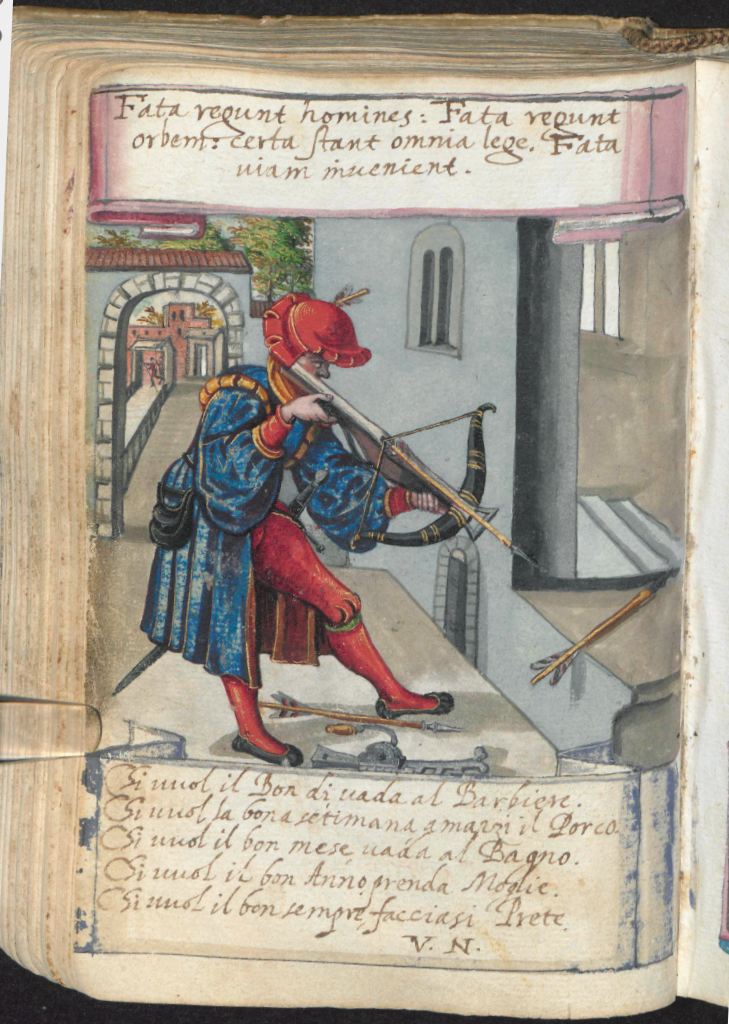 Fata regunt homines: Fata regunt
orbem: certa stant omnia lege. Fata
uiam inuenient.
Chi uuol il Bon di uada al Barbiere.
Chi uuol la bona setimana amazzi il Porco.
Chi uuol il bon mese uada al Bagno.
Chi uuol il bon Anno prenda Moglie.
Chi uuol il bon sempre facciasi Prete.
V. N.